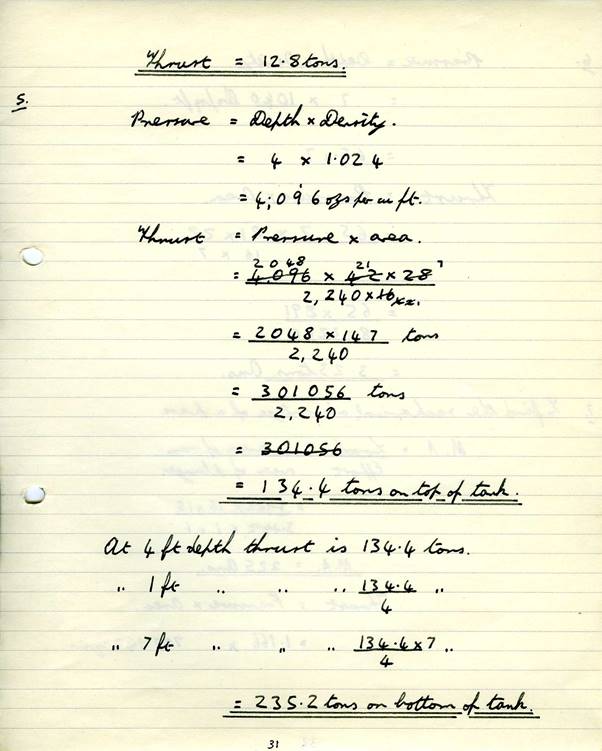 Thrust = 12.8 tons.
5.
Pressure = Depth × Density.
= 4 × 1.024
= 4,096 ozs per cu ft.
Thrust = Pressure × area.
2048 21 7
= 4.096 × 42 × 28
2,240 × 16
= 2048 × 147 tons
2,240
= 301056 tons
2,240
= 301056
= 134.4 tons on top of tank.
At 4 ft depth thrust is 134.4 tons.
" 1 ft " " " 134.4 "
4
" 7 ft " " " 134.4 × 7 "
4
= 235.2 tons on bottom of tank.
31